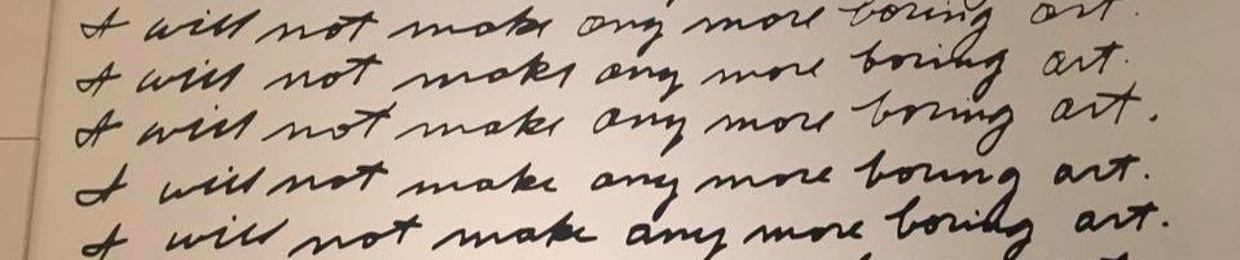 I will not make any more boring art.
I will not make any more boring art.
I will not make any more boring art.
I will not make any more boring art.
I will not make any more boring art.